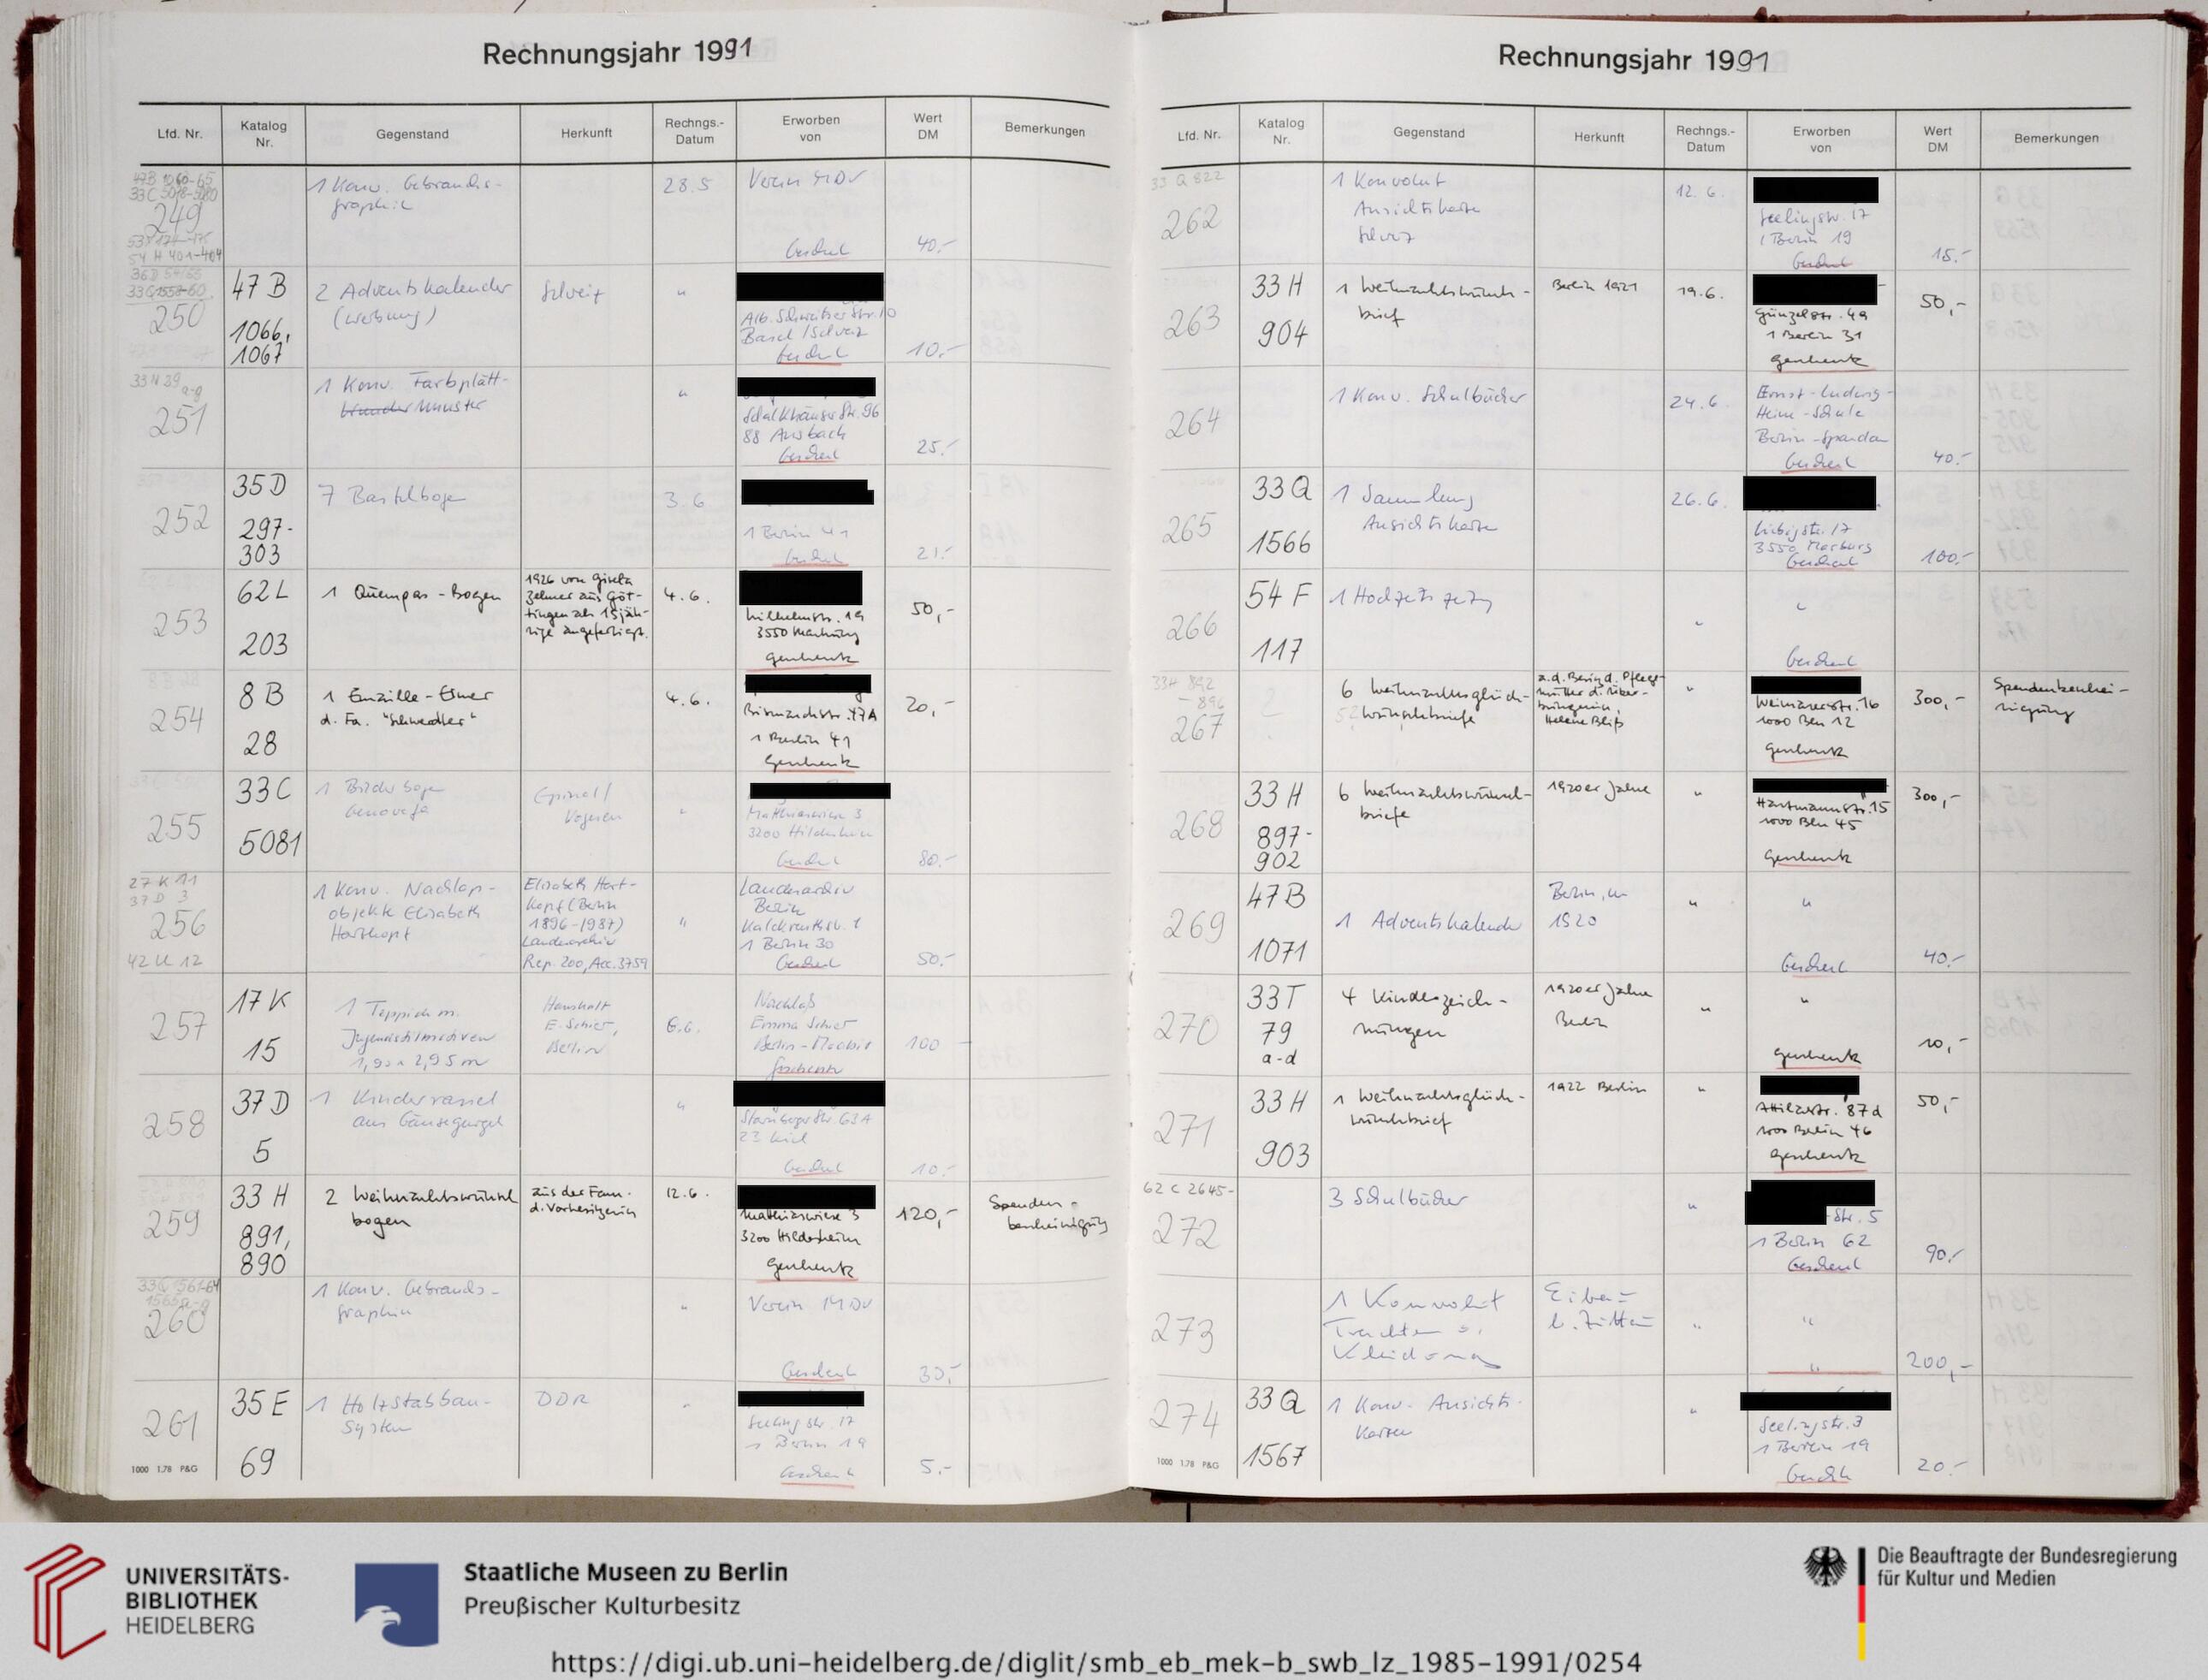 Rechnungsjahr 1991
Lfd. Nr.
Katalog Nr.
Gegenstand
Herkunft
Rechngs.-Datum
Erworben von
Wert DM
Bemerkungen
47B 1060-65
33C 5078-5080
249
54 H 401-404
1 Konv. Gebrauchs-
graphik
28.5
Verein MDV
Geschenk
40.-
250
47 B
1066,
1067
2 Adventskalender
(Werbung)
Schweiz
"
Alb. Schweitzer Str. 10
Basel / Schweiz
Geschenk
10.-
33 N 29
a-g
251
1 Konv. Farbplätt-
muster
"
Schalkhäuser Str. 96
88 Ansbach
Geschenk
25.-
252
35 D
297-
303
7 Bastelbogen
3.6
1 Berlin 41
Geschenk
21.-
253
62 L
203
1 Quempas-Bogen
1926 von Gisela
Zelmer aus Göt-
tingen als 15jäh-
rige angefertigt.
4.6.
Wilhelmstr. 19
3550 Marburg
Geschenk
50,-
254
8 B
28
1 Emaille-Eimer
d. Fa. "Schwedler"
4.6.
Bismarckstr. 47A
1 Berlin 41
Geschenk
20,-
255
33 C
5081
1 Bilderbogen
Genovefa
Epinal /
Vogesen
"
Matthiaswiese 3
3200 Hildesheim
Geschenk
80.-
27 K 11
37 D 3
256
42 U 12
1 Konv. Nachlaß-
objekte Elisabeth
Hartkopf
Elisabeth Hart-
kopf (Berlin
1896-1987)
Landesarchiv
Rep. 200, Acc. 3759
"
Landesarchiv
Berlin
Kalckreuthstr. 1
1 Berlin 30
Geschenk
50.-
257
17 K
15
1 Teppich m.
Jugendstilmotiven
1,90 x 2,95 m
Haushalt
E. Schier,
Berlin
6.6.
Nachlaß
Emma Schier
Berlin-Moabit
Geschenk
100 -
258
37 D
5
1 Kinderrassel
aus Gänsegurgel
"
Starnberger Str. 63A
23 Kiel
Geschenk
10.-
259
33 H
891,
890
2 Weihnachtswunsch
bogen
aus der Fam.
d. Vorbesitzerin
12.6.
Matthiaswiese 3
3200 Hildesheim
Geschenk
120,-
Spenden-
bescheinigung
33Q 1561-64
1565 a-g
260
1 Konv. Gebrauchs-
graphik
"
Verein MDV
Geschenk
30,-
261
35 E
69
1 Holzstabbau-
System
DDR
"
Seelingstr. 17
1 Berlin 19
Geschenk
5.-
1000 1.78 P&G
Rechnungsjahr 1991
Lfd. Nr.
Katalog Nr.
Gegenstand
Herkunft
Rechngs.-Datum
Erworben von
Wert DM
Bemerkungen
33 Q 822
262
1 Konvolut
Ansichtskarten
Schweiz
12.6.
Seelingstr. 17
1 Berlin 19
Geschenk
15.-
263
33 H
904
1 Weihnachtswunsch-
brief
Berlin 1921
19.6.
Günzelstr. 49
1 Berlin 31
Geschenk
50,-
264
1 Konv. Schulbücher
24.6.
Ernst-Ludwig-
Heim-Schule
Berlin-Spandau
Geschenk
40.-
265
33 Q
1566
1 Sammlung
Ansichtskarten
26.6.
Liebigstr. 17
3550 Marburg
Geschenk
100.-
266
54 F
117
1 Hochzeitszeitg
"
"
Geschenk
33H 892
-896
267
6 Weihnachtsglück-
wunschbriefe
a.d. Besitz d. Pflege-
mutter d. Über-
bringerin,
Helene Bliß
"
Weimarerstr. 16
1000 Bln 12
Geschenk
300,-
Spendenbeschei-
nigung
268
33 H
897-
902
6 Weihnachtswunsch-
briefe
1920er Jahre
"
Hartmannstr. 15
1000 Bln 45
Geschenk
300,-
269
47 B
1071
1 Adventskalender
Berlin, um
1920
"
"
Geschenk
40.-
270
33 T
79
a-d
4 Kinderzeich-
nungen
1920er Jahre
Berlin
"
"
Geschenk
10,-
271
33 H
903
1 Weihnachtsglück-
wunschbrief
1922 Berlin
"
Attilastr. 87d
1000 Berlin 46
Geschenk
50,-
62 C 2645-
272
3 Schulbücher
"
-Str. 5
1 Berlin 62
Geschenk
90.-
273
1 Konvolut
Trachten u.
Kleidung
Eibau
b. Zittau
"
"
"
200,-
274
33 Q
1567
1 Konv. Ansichts-
karten
"
Seelingstr. 3
1 Berlin 19
Geschenk
20.-
1000 1.78 P&G
UNIVERSITÄTS-
BIBLIOTHEK
HEIDELBERG
Staatliche Museen zu Berlin
Preußischer Kulturbesitz
Die Beauftragte der Bundesregierung
für Kultur und Medien
https://digi.ub.uni-heidelberg.de/diglit/smb_eb_mek-b_swb_lz_1985-1991/0254